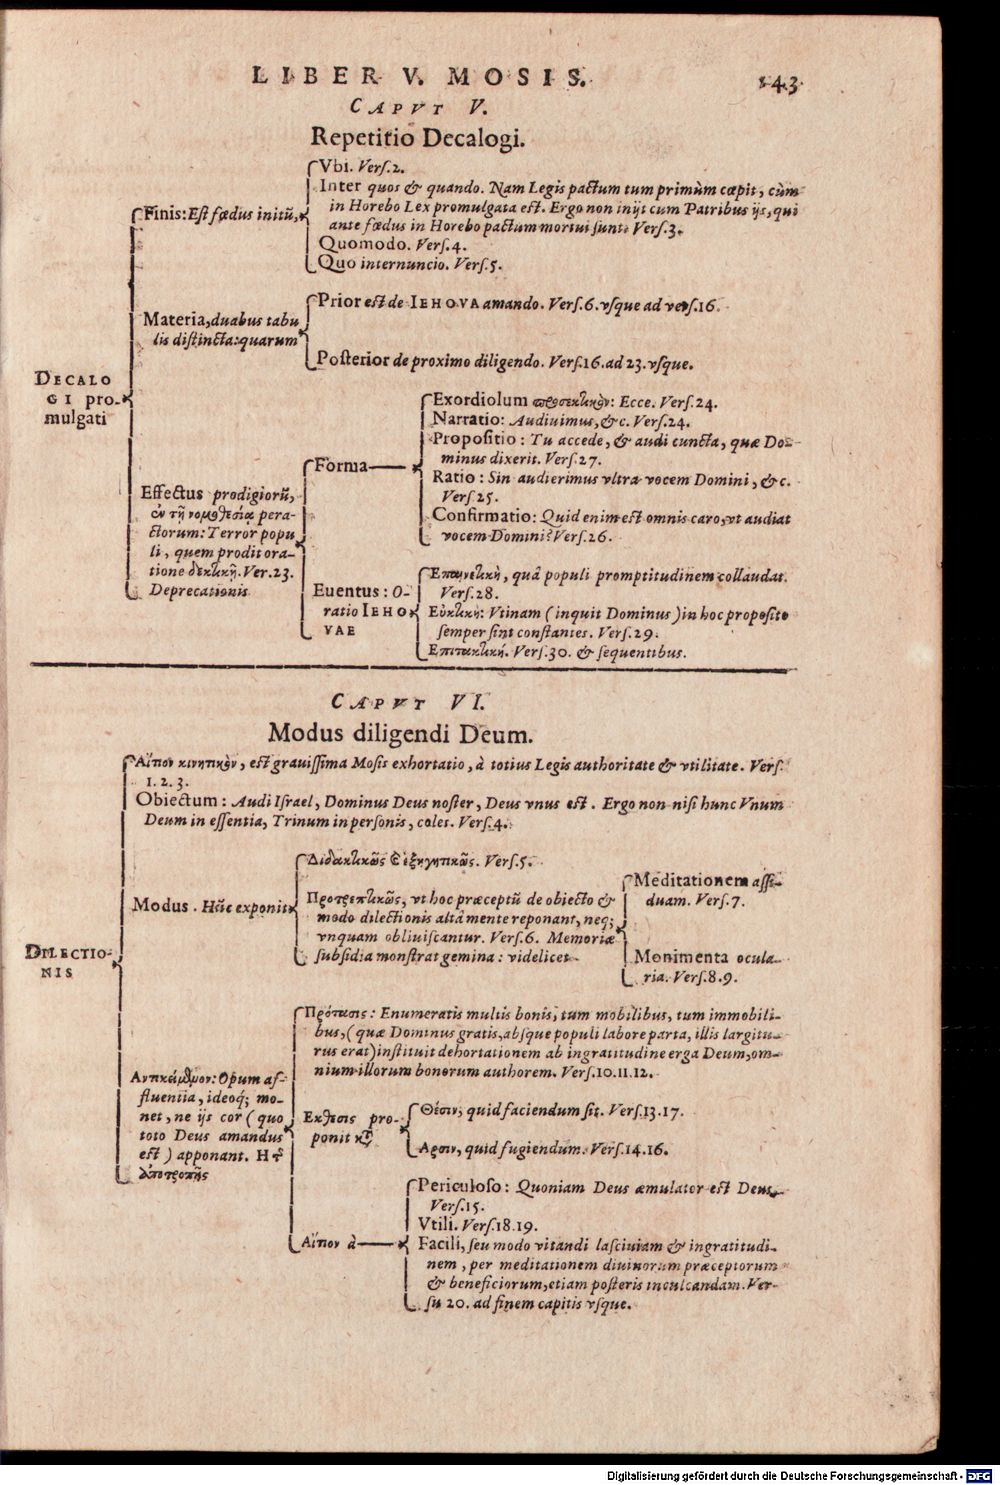 LIBER V. MOSIS. 143
CAPVT V.
Repetitio Decalogi.
DECALO
GI pro-
mulgati
Finis: Est fœdus initū,
Vbi. Vers. 2.
Inter quos & quando. Nam Legis pactum tum primùm cœpit, cùm
in Horebo Lex promulgata est. Ergo non inijt cum Patribus ijs, qui
ante fœdus in Horebo pactum mortui sunt. Vers. 3.
Quomodo. Vers. 4.
Quo internuncio. Vers. 5.
Materia, duabus tabu
lis distincta: quarum
Prior est de IEHOVA amando. Vers. 6. vsque ad vers. 16.
Posterior de proximo diligendo. Vers. 16. ad 23. vsque.
Effectus prodigiorū,
ἐν τῇ νομοθεσίᾳ pera-
ctorum: Terror popu
li, quem prodit ora-
tione δεκτικῇ. Ver. 23.
Deprecationis
Forma
Exordiolum προσεκτικὸν: Ecce. Vers. 24.
Narratio: Audiuimus, &c. Vers. 24.
Propositio: Tu accede, & audi cuncta, quæ Do-
minus dixerit. Vers. 27.
Ratio: Sin audierimus vltra vocem Domini, &c.
Vers. 25.
Confirmatio: Quid enim est omnis caro, vt audiat
vocem Domini? Vers. 26.
Euentus: O-
ratio IEHO
VAE
Επαινετικὴ, quâ populi promptitudinem collaudat.
Vers. 28.
Εὐκτικὴ: Vtinam (inquit Dominus) in hoc proposito
semper sint constantes. Vers. 29.
Επιτακτική. Vers. 30. & sequentibus.
CAPVT VI.
Modus diligendi Deum.
DILECTIO-
NIS
Αἴτιον κινητικὸν, est grauissima Mosis exhortatio, à totius Legis authoritate & vtilitate. Vers.
1. 2. 3.
Obiectum: Audi Israel, Dominus Deus noster, Deus vnus est. Ergo non nisi hunc Vnum
Deum in essentia, Trinum in personis, coles. Vers. 4.
Modus. Hūc exponit
Διδακτικῶς & ἐξηγητικῶς. Vers. 5.
Προτρεπτικῶς, vt hoc præceptū de obiecto &
modo dilectionis altâ mente reponant, neq;
vnquam obliuiscantur. Vers. 6. Memoriæ
subsidia monstrat gemina: videlicet
Meditationem assi-
duam. Vers. 7.
Monimenta ocula-
ria. Vers. 8. 9.
Αντικείμενον: Opum af-
fluentia, ideoq; mo-
net, ne ijs cor (quo
toto Deus amandus
est) apponant. Ητ
ἀποτροπῆς
Πρότασις: Enumeratis multis bonis, tum mobilibus, tum immobili-
bus, (quæ Dominus gratis, absque populi labore parta, illis largitu-
rus erat) instituit dehortationem ab ingratitudine erga Deum, om-
nium illorum bonorum authorem. Vers. 10. 11. 12.
Εκθεσις pro-
ponit κτ
Θέσιν, quid faciendum sit. Vers. 13. 17.
Αρσιν, quid fugiendum. Vers. 14. 16.
Αἴτιον à
Periculoso: Quoniam Deus æmulator est Deus,
Vers. 15.
Vtili. Vers. 18. 19.
Facili, seu modo vitandi lasciuiam & ingratitudi-
nem, per meditationem diuinorum præceptorum
& beneficiorum, etiam posteris inculcandam. Ver-
su 20. ad finem capitis vsque.
Digitalisierung gefördert durch die Deutsche Forschungsgemeinschaft - DFG